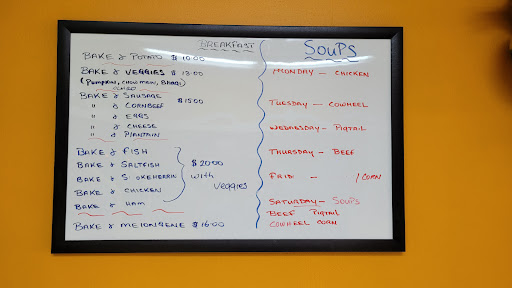 BREAKFAST
BAKE & POTATO $10.00
BAKE & VEGGIES $13.00
(PUMPKIN, CHOWMEIN, BHAGI)
BAKE & SAUSAGE
" & CORNBEEF $15.00
" & EGGS
" & CHEESE
" & PLANTAIN
BAKE & FISH
BAKE & SALTFISH $20.00
BAKE & S OKEHERRIN with
BAKE & CHICKEN Veggies
BAKE & HAM
BAKE & MELONGENE $16.00
SOUPS
MONDAY - CHICKEN
TUESDAY - COWHEEL
WEDNESDAY - PIGTAIL
THURSDAY - BEEF
FRID - /CORN
SATURDAY - SOUPS
BEEF PIGTAIL
COWHEEL CORN